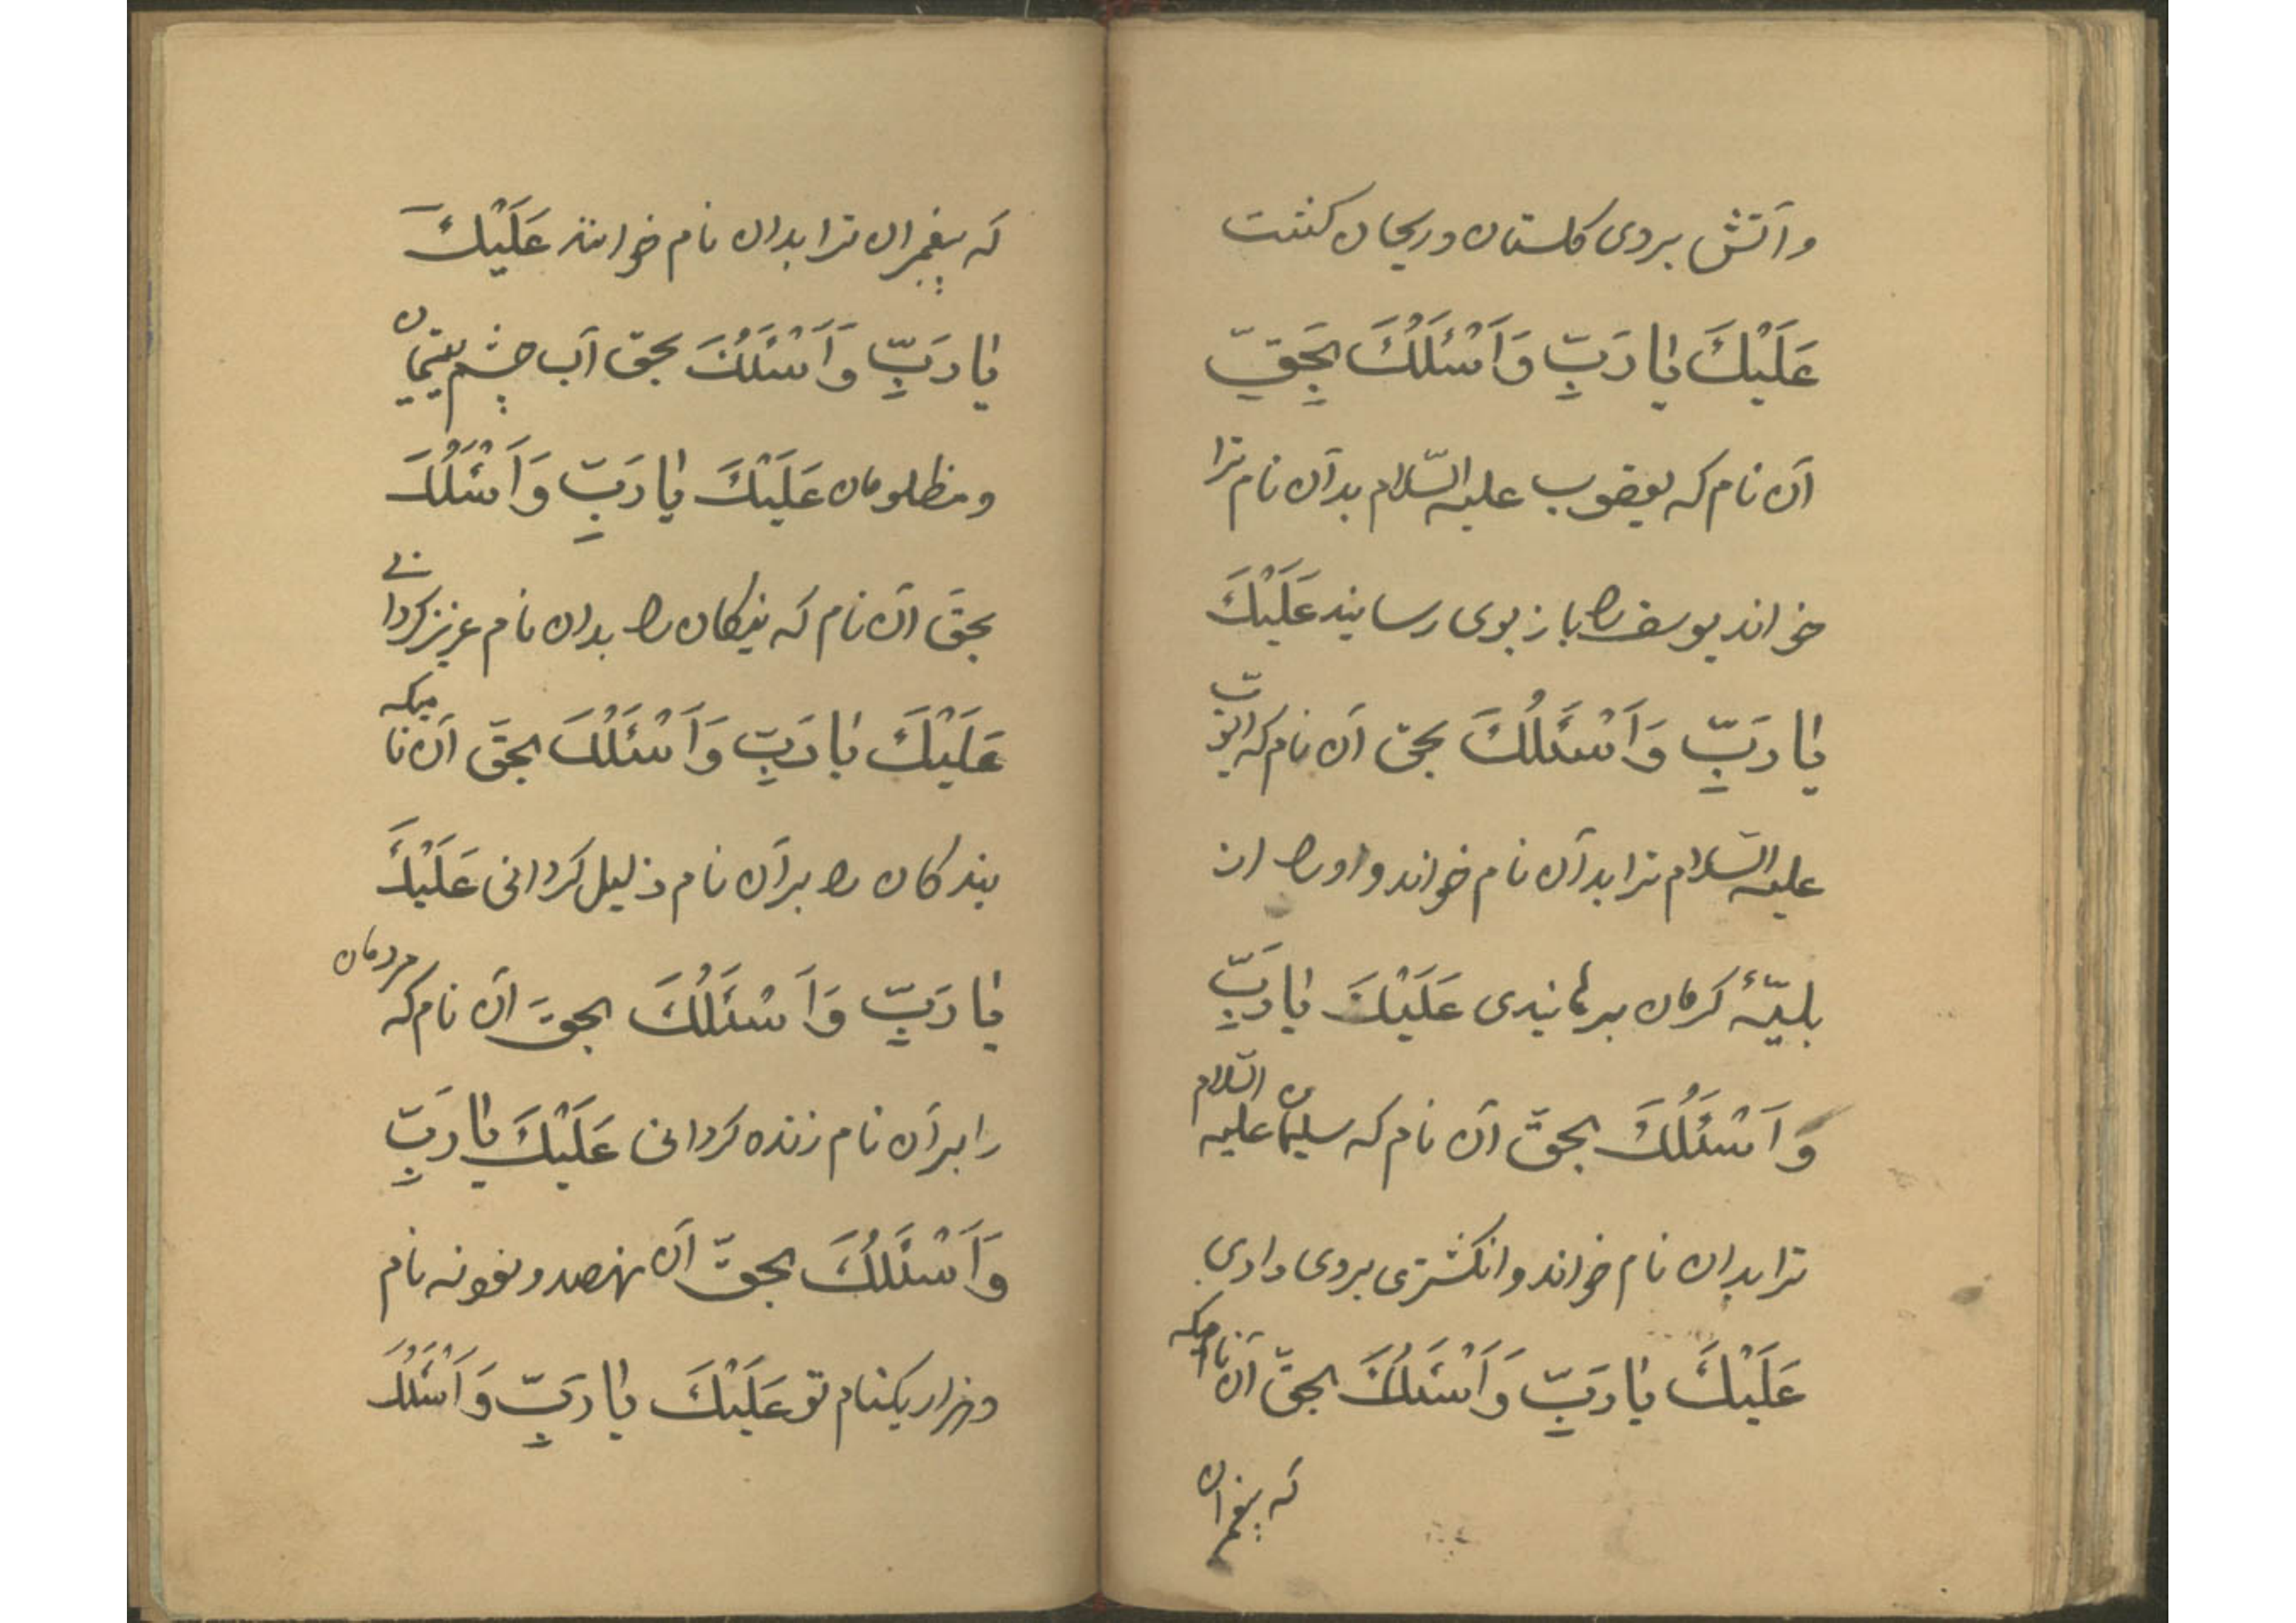 وآتش بروی کلستان وریحان کشت
عَلَیْكَ یا رَبِّ وَاَسْئَلُكَ بِحَقِّ
آن نام که یعقوب علیه السّلام بدآن نام ترا
خواند یوسف را باز بوی رسانید عَلَیْكَ
یا رَبِّ وَاَسْئَلُكَ بحق آن نام که ایّوب
علیه السّلام ترا بدآن نام خواند واورا از
بلیّهٔ کرمان برهانیدی عَلَیْكَ یا رَبِّ
وَاَسْئَلُكَ بحقّ آن نام که سلیمان علیه السّلام
ترا بدان نام خواند وانکشتری بروی دادی
عَلَیْكَ یا رَبِّ وَاَسْئَلُكَ بحقّ آن نامیکه
که پیغمبران
که پیغمبران ترا بدان نام خوانند عَلَیْكَ
یا رَبِّ وَاَسْئَلُكَ بحق آب چشم یتیمان
ومظلومان عَلَیْكَ یا رَبِّ وَاَسْئَلُكَ
بحقّ آن نام که نیکان را بدان نام عزیز کردانی
عَلَیْكَ یا رَبِّ وَاَسْئَلُكَ بحقّ آن نامیکه
بندکان را برآن نام ذلیل کردانی عَلَیْكَ
یا رَبِّ وَاَسْئَلُكَ بحقّ آن نام که مردمان
را برآن نام زنده کردانی عَلَیْكَ یا رَبِّ
وَاَسْئَلُكَ بحقّ آن نهصد ونودنه نام
وهزار یکنام تو عَلَیْكَ یا رَبِّ وَاَسْئَلُكَ